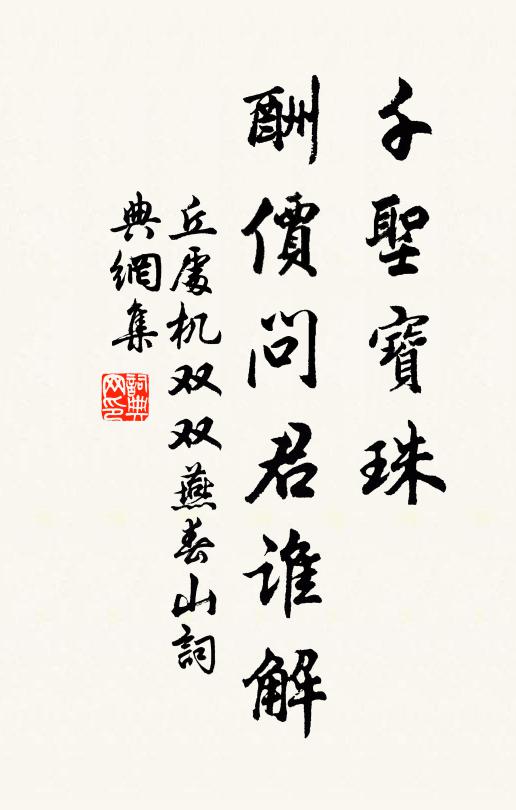 千聖寶珠
酬價問君誰解
丘處机双双燕春山詞
典網集
詞典
网印